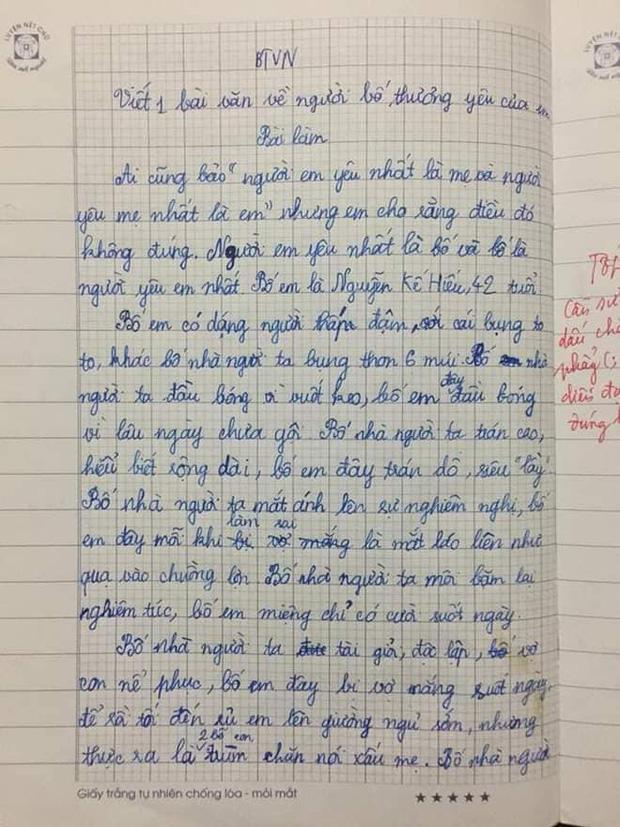 LUYỆN NÉT CHỮ
BTVN
Viết 1 bài văn về người bố thương yêu của em
Bài làm
Ai cũng bảo "người em yêu nhất là mẹ và người
yêu mẹ nhất là em" nhưng em cho rằng điều đó
không đúng. Người em yêu nhất là bố và bố là
người yêu em nhất. Bố em là Nguyễn Kế Hiếu, 42 tuổi
Bố em có dáng người đậm, với cái bụng to
to, khác bố nhà người ta bụng thon 6 múi. Bố nhà
người ta đầu bóng vì vuốt keo, bố em đây đầu bóng
vì lâu ngày chưa gội Bố nhà người ta trán cao,
hiểu biết rộng dài, bố em đây trán dồ, siêu "lầy"
Bố nhà người ta mắt ánh lên sự nghiêm nghị, bố
em đây mỗi khi làm sai là mắt láo liên như
qua vào chuồng lợn Bố nhà người ta môi bặm lại
nghiêm túc, bố em miệng chỉ có cười suốt ngày.
Bố nhà người ta tài giỏi, độc lập, vợ
con nể phục, bố em đây bị vợ mắng suốt ngày,
để rồi tối đến rủ em lên giường ngủ sớm, nhưng
thực ra là 2 bố con trùm chăn nói xấu mẹ. Bố nhà người
Giấy trắng tự nhiên chống lóa - mỏi mắt
★★★★★